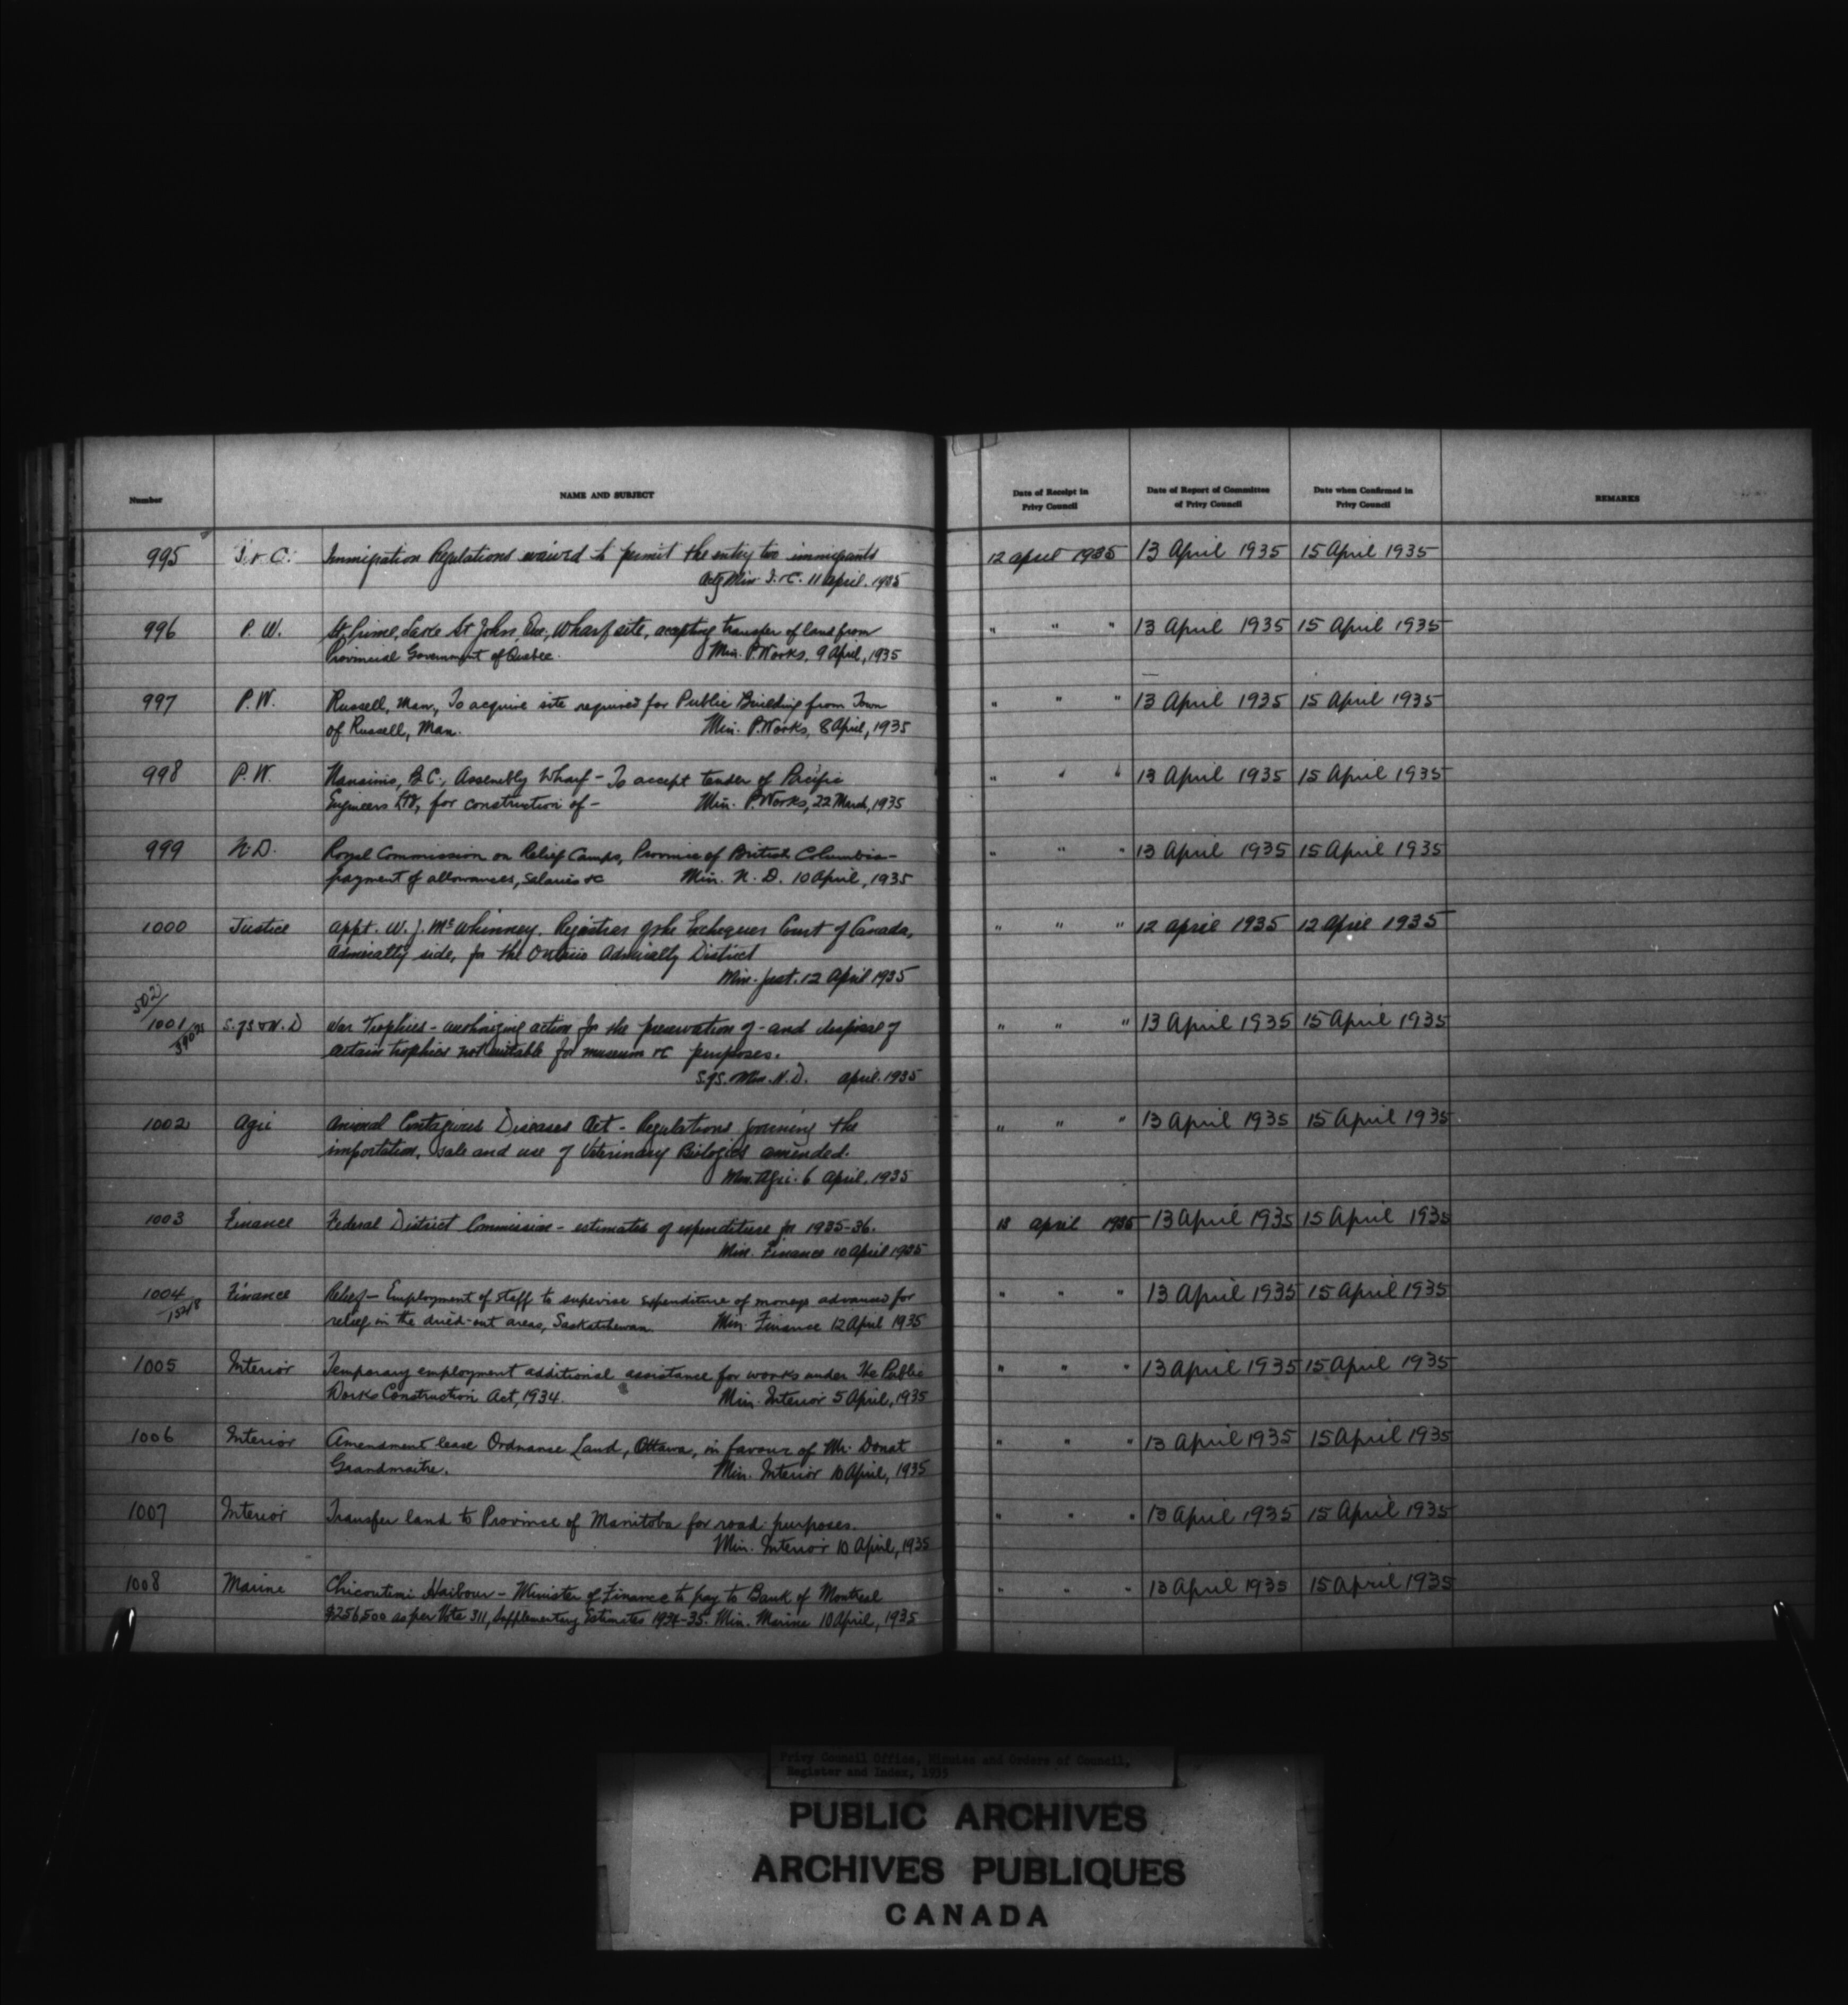 Number
NAME AND SUBJECT
Date of Receipt in Privy Council
Date of Report of Committee of Privy Council
Date when Confirmed in Privy Council
REMARKS
995 I. & C. Immigration Regulations waived to permit the entry two immigrants 12 April 1935 13 April 1935 15 April 1935
Actg Min I. & C. 11 April. 1935
996 P. W. St. Prime, Lake St John, Que, Wharf site, accepting transfer of land from " " " 13 April 1935 15 April 1935
Provincial Government of Quebec. Min. P. Works, 9 April, 1935
997 P. W. Russell, Man., To acquire site required for Public Building from Town " " " 13 April 1935 15 April 1935
of Russell, Man. Min. P. Works, 8 April, 1935
998 P. W. Nanaimo, B.C., Assembly Wharf - To accept tender of Pacific " " " 13 April 1935 15 April 1935
Engineers Ltd, for construction of - Min. P. Works, 22 March, 1935
999 N. D. Royal Commission on Relief Camps, Province of British Columbia - " " " 13 April 1935 15 April 1935
payment of allowances, salaries &c Min. N. D. 10 April, 1935
1000 Justice Appt. W. J. McWhinney. Registrar of the Exchequer Court of Canada, " " " 12 April 1935 12 April 1935
Admiralty side, for the Ontario Admiralty District
Min. Just. 12 April 1935
502/
1001 S. of S & N. D War Trophies - authorizing action for the preservation of - and disposal of " " " 13 April 1935 15 April 1935
certain trophies not suitable for museum &c purposes.
S. of S. Min. N. D. April. 1935
1002 Agri Animal Contagious Diseases Act - Regulations governing the " " " 13 April 1935 15 April 1935
importation, sale and use of Veterinary Biologics amended.
Min. Agri. 6 April. 1935
1003 Finance Federal District Commission - estimates of expenditure for 1935-36. 13 April 1935 13 April 1935 15 April 1935
Min. Finance 10 April 1935
1004 Finance Relief - Employment of staff to supervise expenditure of moneys advanced for " " " 13 April 1935 15 April 1935
relief in the dried-out areas, Saskatchewan. Min. Finance 12 April 1935
1005 Interior Temporary employment additional assistance for works under The Public " " " 13 April 1935 15 April 1935
Works Construction Act, 1934. Min. Interior 5 April, 1935
1006 Interior Amendment lease Ordnance Land, Ottawa, in favour of Mr. Donat " " " 13 April 1935 15 April 1935
Grandmaitre. Min. Interior 10 April, 1935
1007 Interior Transfer land to Province of Manitoba for road purposes. " " " 13 April 1935 15 April 1935
Min. Interior 10 April, 1935
1008 Marine Chicoutimi Harbour - Minister of Finance to pay to Bank of Montreal " " " 13 April 1935 15 April 1935
$256,500 as per Vote 311, Supplementary Estimates 1934-35. Min. Marine 10 April, 1935
Privy Council Office, Minutes and Orders of Council,
Register and Index, 1935
PUBLIC ARCHIVES
ARCHIVES PUBLIQUES
CANADA